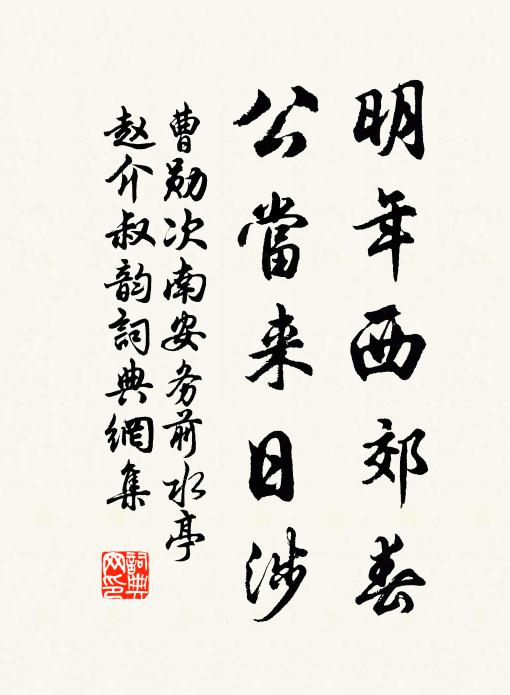 明年西郊春
公當来日涉
曹勛次南安务前水亭
赵介叔韵詞典網集
詞典網印